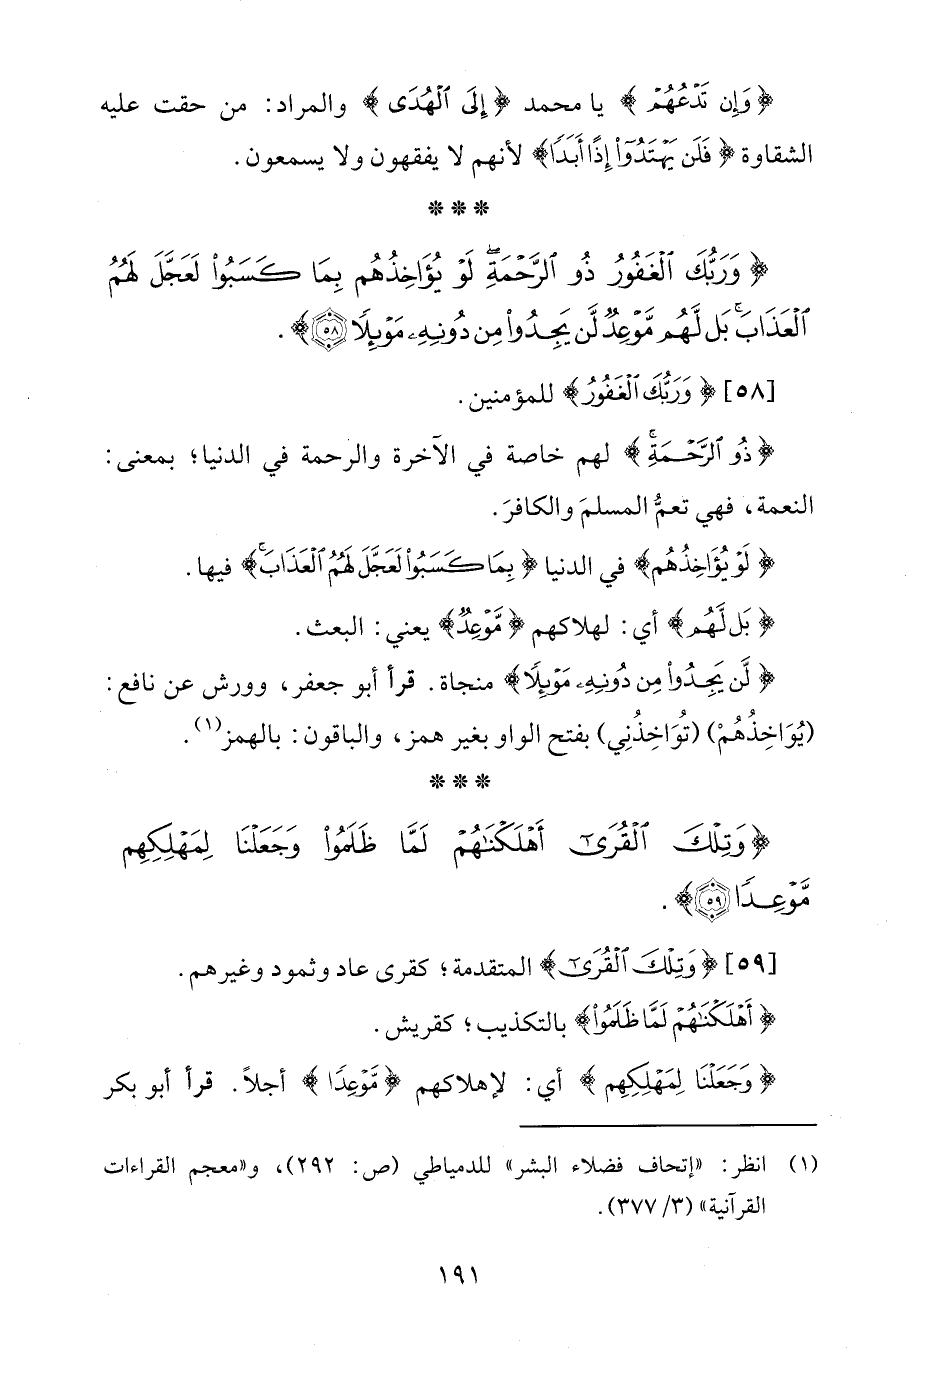 ﴿ وَإِن تَدْعُهُمْ ﴾ يا محمد ﴿ إِلَى ٱلْهُدَى ﴾ والمراد: من حقت عليه
الشقاوة ﴿ فَلَن يَهْتَدُوٓا۟ إِذًا أَبَدًا﴾ لأنهم لا يفقهون ولا يسمعون.
* * *
﴿ وَرَبُّكَ ٱلْغَفُورُ ذُو ٱلرَّحْمَةِۖ لَوْ يُؤَاخِذُهُم بِمَا كَسَبُوا۟ لَعَجَّلَ لَهُمُ
ٱلْعَذَابَۚ بَل لَّهُم مَّوْعِدٌ لَّن يَجِدُوا۟ مِن دُونِهِۦ مَوْئِلًا ٥٨﴾ .
[٥٨] ﴿ وَرَبُّكَ ٱلْغَفُورُ﴾ للمؤمنين.
﴿ ذُو ٱلرَّحْمَةِۚ ﴾ لهم خاصة في الآخرة والرحمة في الدنيا؛ بمعنى:
النعمة، فهي تعمُّ المسلمَ والكافرَ.
﴿ لَوْ يُؤَاخِذُهُم﴾ في الدنيا ﴿ بِمَا كَسَبُوا۟ لَعَجَّلَ لَهُمُ ٱلْعَذَابَۚ﴾ فيها.
﴿ بَل لَّهُم﴾ أي: لهلاكهم ﴿مَّوْعِدٌ﴾ يعني: البعث.
﴿ لَّن يَجِدُوا۟ مِن دُونِهِۦ مَوْئِلًا﴾ منجاة. قرأ أبو جعفر، وورش عن نافع:
(يُوَاخِذُهُمْ) (تُوَاخِذُنِي) بفتح الواو بغير همز، والباقون: بالهمز(١).
* * *
﴿وَتِلْكَ ٱلْقُرَىٰٓ أَهْلَكْنَٰهُمْ لَمَّا ظَلَمُوا۟ وَجَعَلْنَا لِمَهْلِكِهِم
مَّوْعِدًا ٥٩﴾ .
[٥٩] ﴿وَتِلْكَ ٱلْقُرَىٰٓ﴾ المتقدمة؛ كقرى عاد وثمود وغيرهم.
﴿ أَهْلَكْنَٰهُمْ لَمَّا ظَلَمُوا۟﴾ بالتكذيب؛ كقريش.
﴿ وَجَعَلْنَا لِمَهْلِكِهِم ﴾ أي: لإهلاكهم ﴿مَّوْعِدًا ﴾ أجلاً. قرأ أبو بكر
(١) انظر: «إتحاف فضلاء البشر» للدمياطي (ص: ٢٩٢)، و«معجم القراءات
القرآنية» (٣/ ٣٧٧).
١٩١